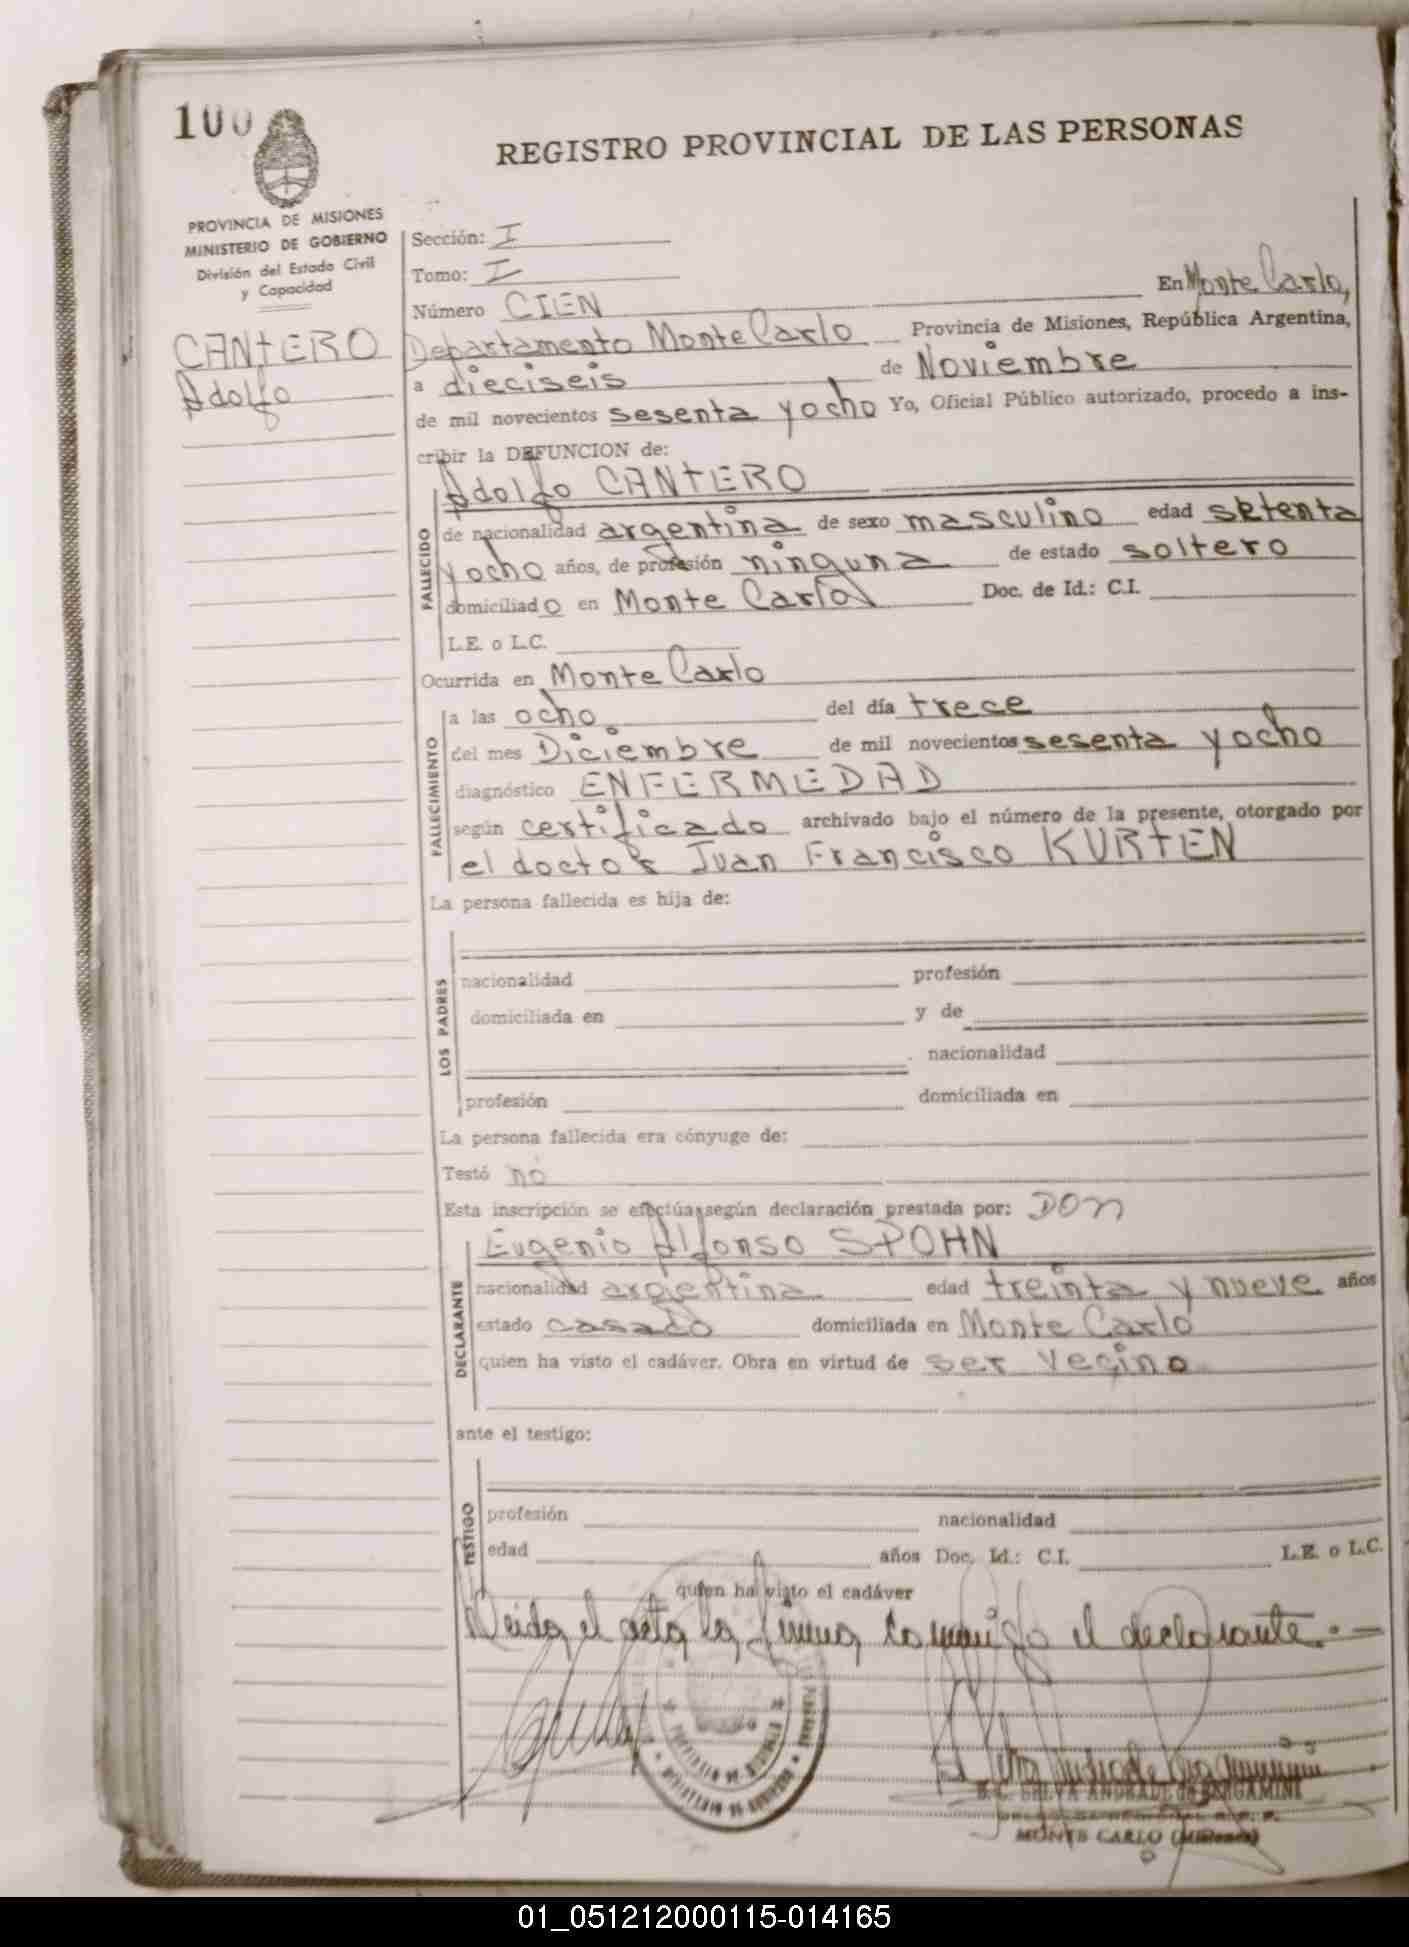 100
REGISTRO PROVINCIAL DE LAS PERSONAS
PROVINCIA DE MISIONES
MINISTERIO DE GOBIERNO
División del Estado Civil
y Capacidad
CANTERO
Adolfo
Sección: I
Tomo: I
Número CIEN En Monte Carlo,
Departamento Monte Carlo Provincia de Misiones, República Argentina,
a dieciseis de Noviembre
de mil novecientos sesenta y ocho Yo, Oficial Público autorizado, procedo a ins-
cribir la DEFUNCION de:
Adolfo CANTERO
FALLECIDO
de nacionalidad argentina de sexo masculino edad setenta
y ocho años, de profesión ninguna de estado soltero
domiciliado en Monte Carlo Doc. de Id.: C.I.
L.E. o L.C.
Ocurrida en Monte Carlo
FALLECIMIENTO
a las ocho del día trece
del mes Diciembre de mil novecientos sesenta y ocho
diagnóstico ENFERMEDAD
según certificado archivado bajo el número de la presente, otorgado por
el doctor Juan Francisco KURTEN
La persona fallecida es hija de:
LOS PADRES
nacionalidad profesión
domiciliada en y de
nacionalidad
profesión domiciliada en
La persona fallecida era cónyuge de:
Testó no
Esta inscripción se efectúa según declaración prestada por: DON
Eugenio Alfonso SPOHN
DECLARANTE
nacionalidad argentina edad treinta y nueve años
estado casado domiciliada en Monte Carlo
quien ha visto el cadáver. Obra en virtud de ser vecino
ante el testigo:
TESTIGO
profesión nacionalidad
edad años Doc. Id.: C.I. L.E. o L.C.
quien ha visto el cadáver
Leida el acta la firma conmigo el declarante.-
SELVA ANDRADE de BERGAMINI
MONTE CARLO (Misiones)
01_051212000115-014165